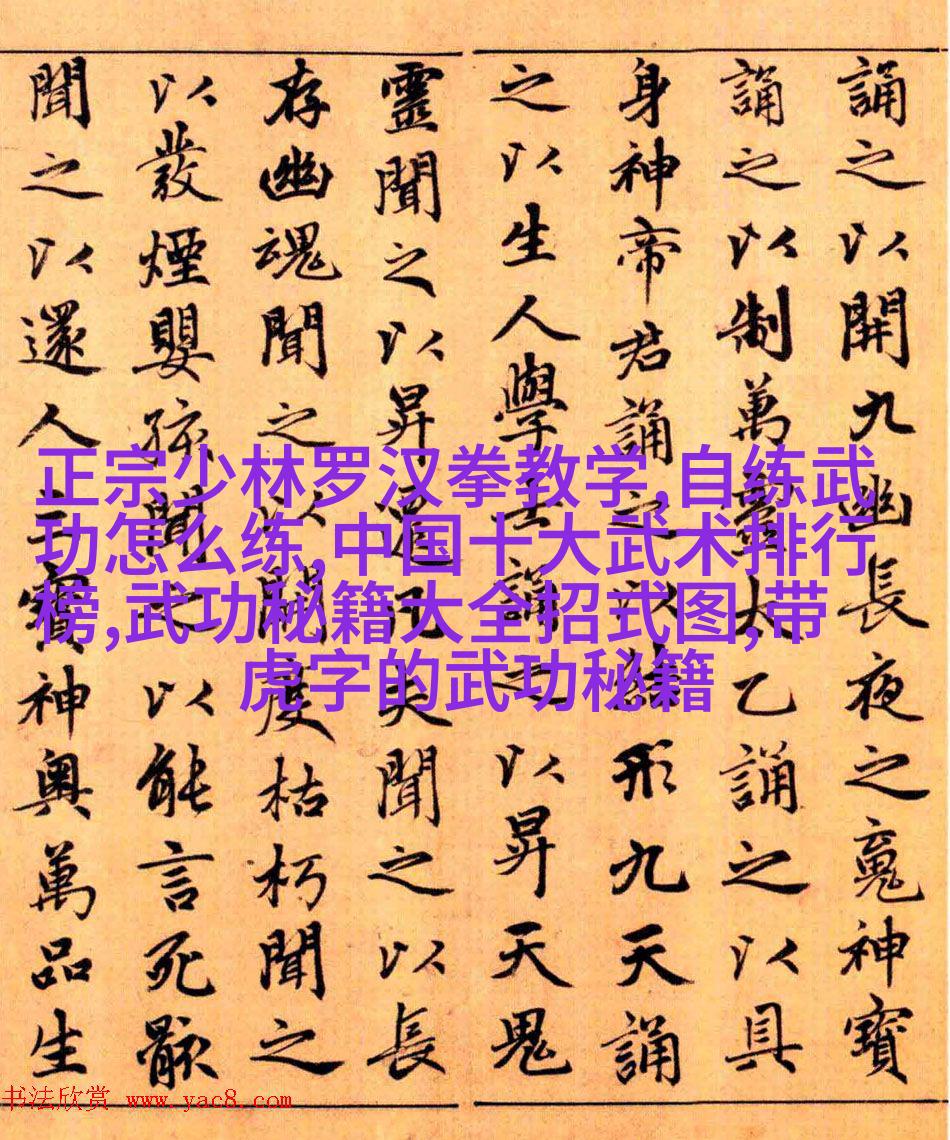 誦之以開九幽長夜之䰟神寶
誦之以制萬靈太乙誦之以具
身神帝君誦之以結形九天誦
之以生人學士誦之以昇天鬼
靈聞之以昇遷凡夫聞之以長
存幽魂聞之以開度枯朽聞之
以發煙嬰孩聞之以能言死骸
聞之以還人三寶神奧萬品生
正宗少林罗汉拳教学,自练武
功怎么练,中国十大武术排行
榜,武功秘籍大全招式图,带
虎字的武功秘籍
书法欣赏 www.yac8.com